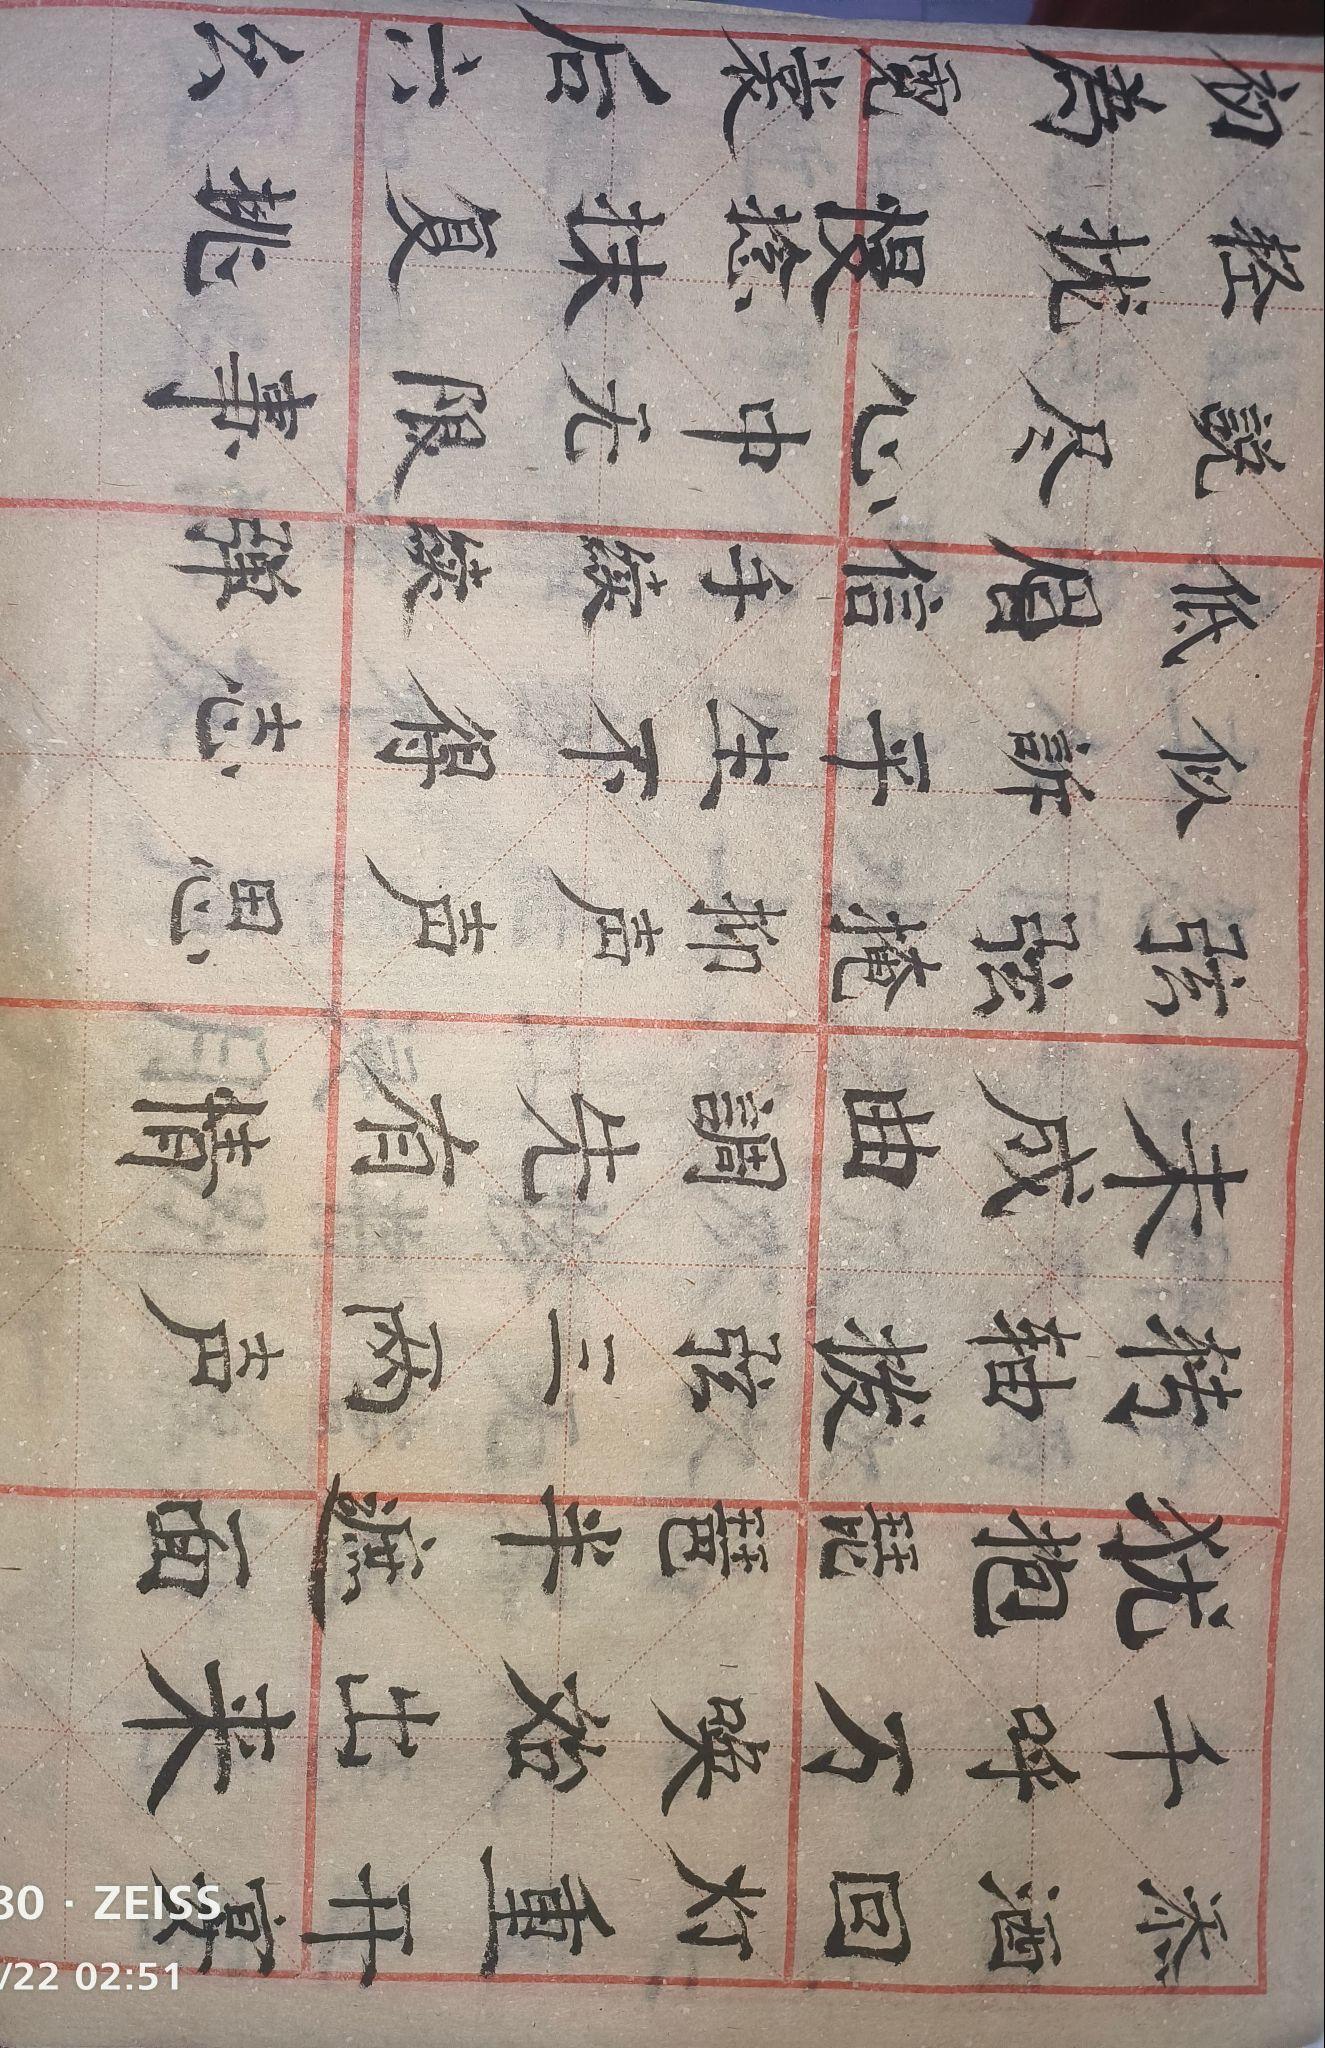 添酒回灯重开宴
千呼万唤始出来
犹抱琵琶半遮面
转轴拨弦三兩声
未成曲調先有情
弦弦掩抑声声思
似訴平生不得志
低眉信手续续弹
説尽心中无限事
轻拢慢捻抹复挑
初為霓裳后六幺
80 · ZEISS
/22 02:51